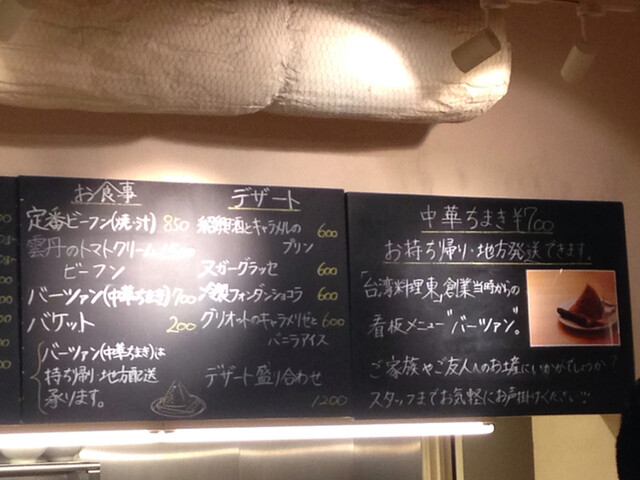 お食事
定番ビーフン(焼・汁) 850
雲丹のトマトクリーム
ビーフン
バーツァン(中華ちまき) 700
バケット 200
バーツァン(中華ちまき)は
持ち帰り・地方配送
承ります。
デザート
紹興酒とキャラメルの 600
プリン
ヌガーグラッセ 600
冷製フォンダンショコラ 600
グリオットのキャラメリゼと 600
バニラアイス
デザート盛り合わせ
1200
中華ちまき¥700
お持ち帰り・地方発送できます。
「台湾料理 東」創業当時からの
看板メニュー"バーツァン"。
ご家族やご友人へのお土産にいかがでしょうか?
スタッフまでお気軽にお声掛けください!!